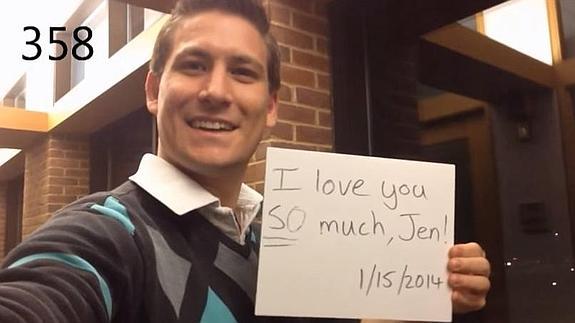 358
I love you
SO much, Jen!
1/15/2014